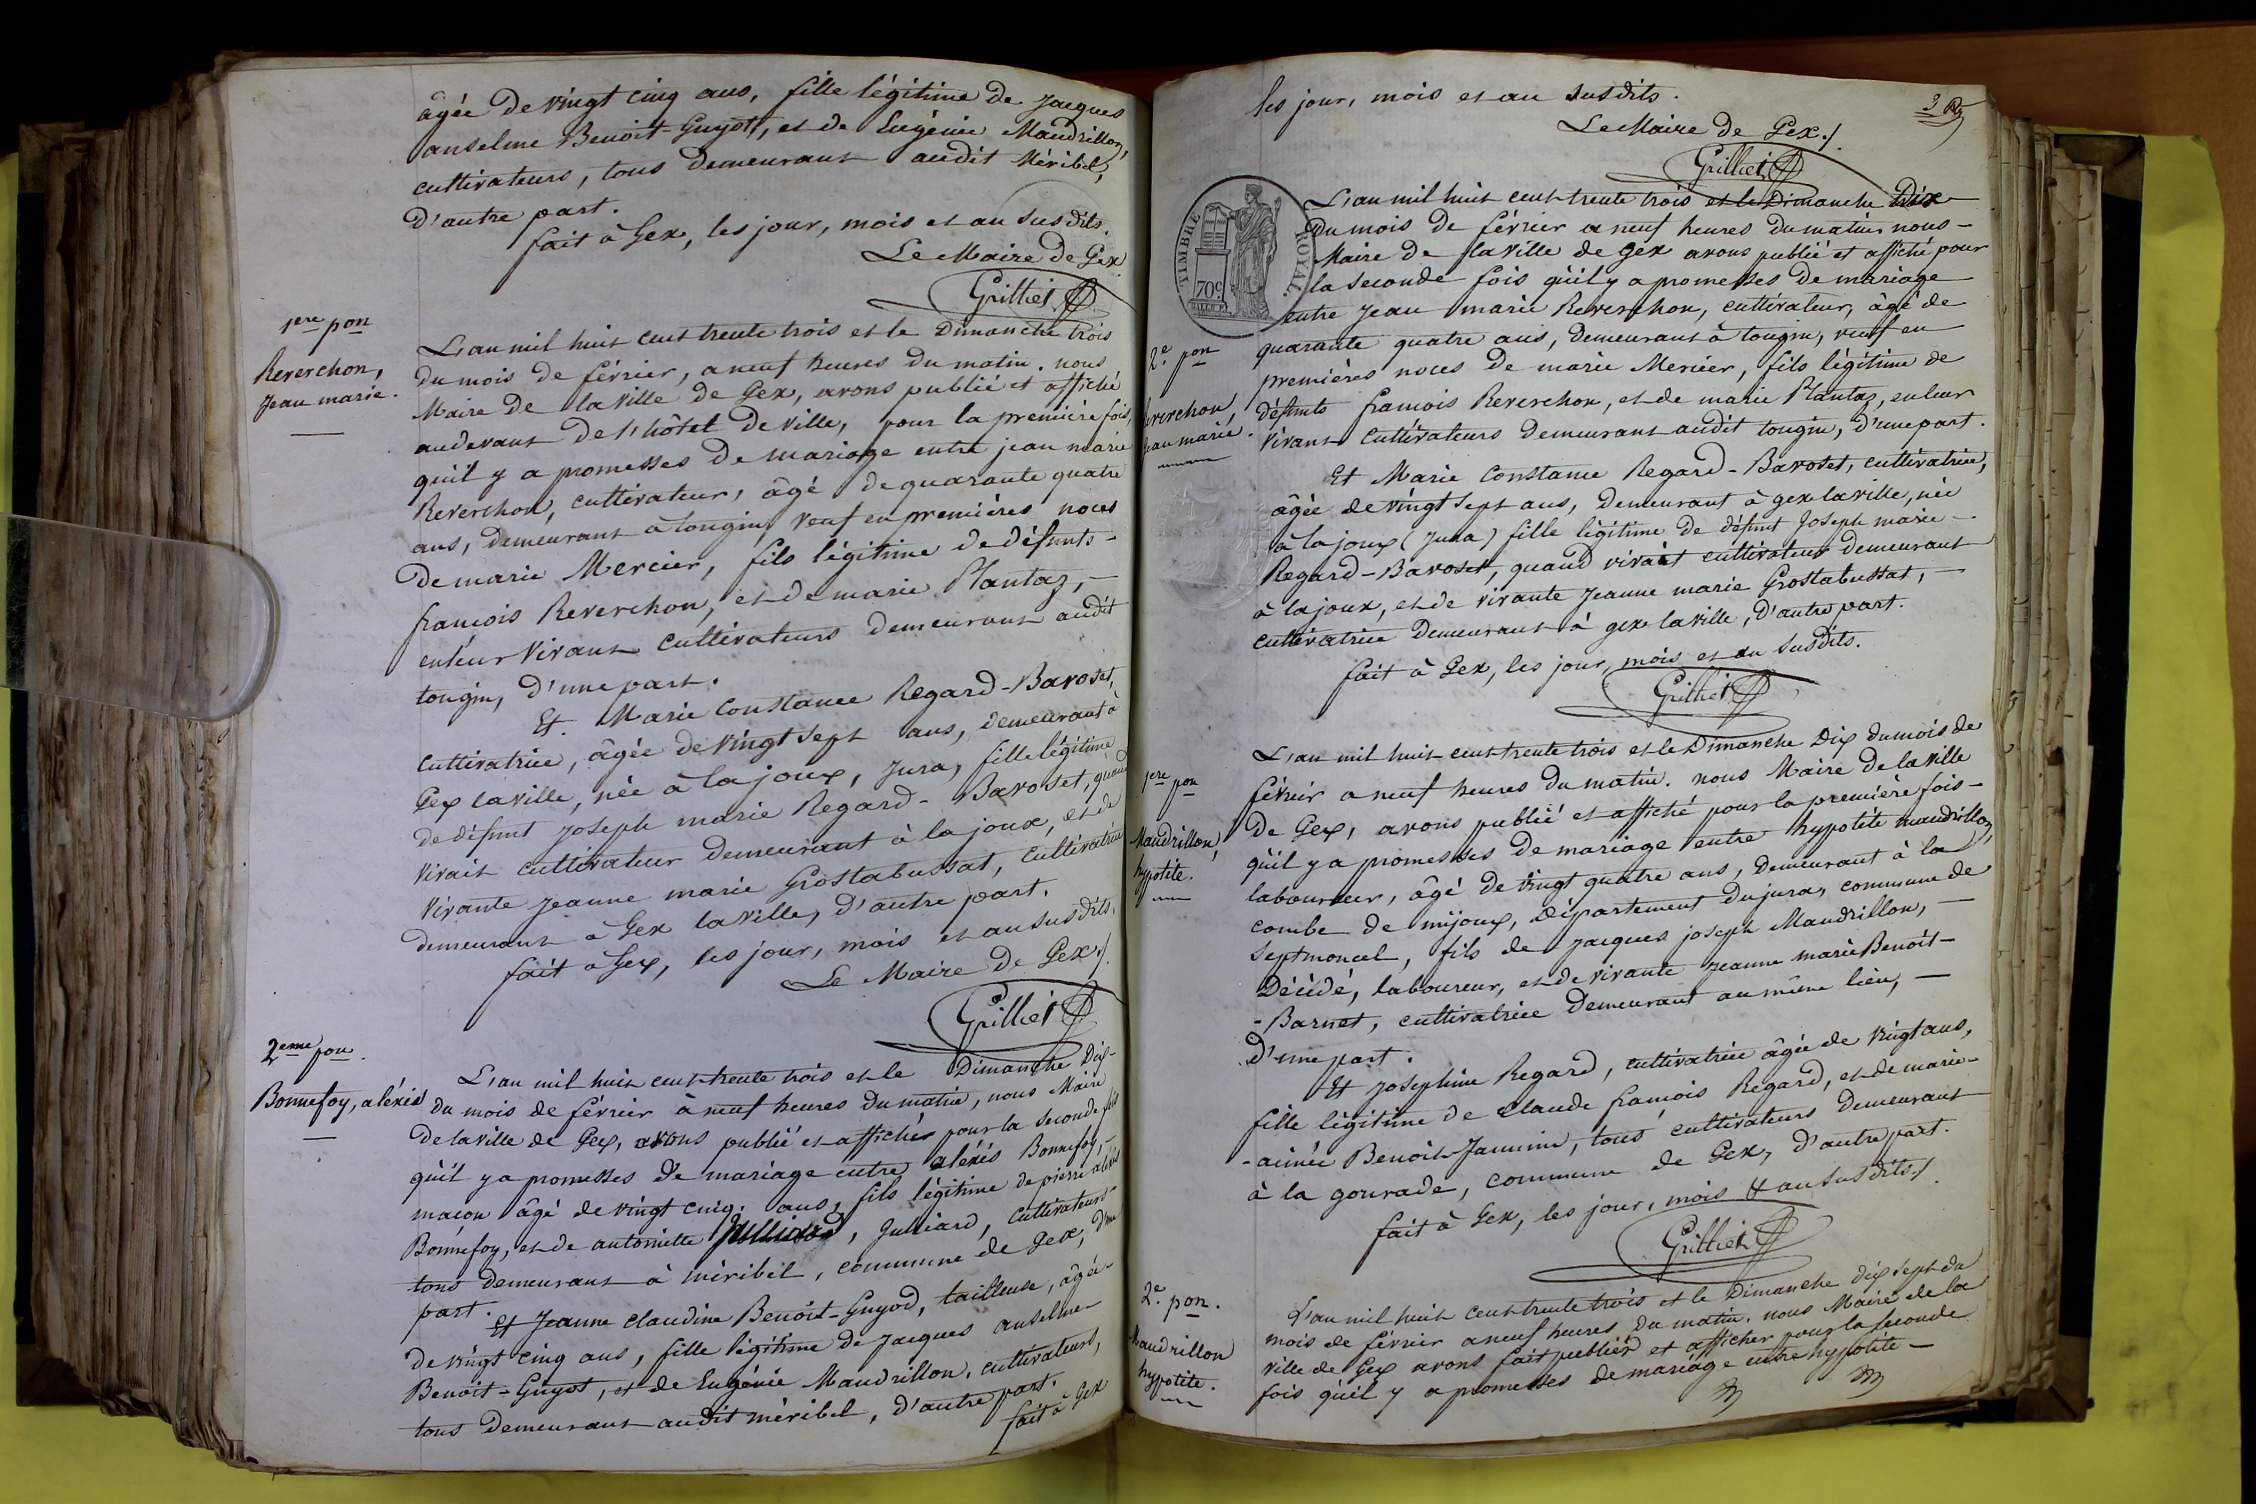 âgée de vingt cinq ans, fille légitime de Jacques
anselme Benoit-Guyot, et de Eugénie Maudrillon,
cultivateurs, tous demeurant audit Méribel,
d'autre part.
fait à Gex, les jour, mois et an susdits.
Le Maire de Gex
Grilliet
1ere pon
Reverchon,
Jean marie.
L'an mil huit cent trente trois et le Dimanche trois
du mois de février, a neuf heures du matin. nous
Maire de la ville de Gex, avons publié et affiché
audevant de l'hôtel de ville, pour la première fois,
qu'il y a promesses de mariage entre jean marie
Reverchon, cultivateur, âgé de quarante quatre
ans, demeurant à tougin, veuf en premières noces
de marie Mercier, fils légitime de défunts -
françois Reverchon, et de marie Plantaz, -
enleur vivant cultivateurs demeurant audit
tougin, d'une part.
Et. Marie Constance Regard-Baroset,
cultivatrice, âgée de vingt sept ans, demeurant à
Gex la ville, née à la joux, Jura, fille légitime
de défunt Joseph marie Regard-Baroset, quand
vivait cultivateur demeurant à la joux, et de
vivante Jeanne marie Grostabussat, cultivatrice
demeurant à Gex la ville, d'autre part.
fait à Gex, les jour, mois et an susdits.
Le Maire de Gex./.
Grilliet
2eme pon.
Bonnefoy, aléxis
L'an mil huit cent trente trois et le Dimanche Dix-
du mois de février à neuf heures du matin, nous Maire
de la ville de Gex, avons publié et affichés pour la seconde fois
qu'il y a promesses de mariage entre aléxis Bonnefoy, -
macon âgé de vingt cinq. ans, fils légitime de pierre aléxis
Bonnefoy, et de antoinette Julliard, Julliard, cultivateurs-
tous demeurant à méribel, commune de Gex, d'une
part.
Et Jeanne claudine Benoit-Guyod, tailleuse, âgée-
de vingt cinq ans, fille légitime de Jacques anselme-
Benoit-Guyot, et de Eugénie Maudrillon, cultivateurs,
tous demeurant audit méribel, d'autre part.
fait à Gex
les jour, mois et an susdits.
3
Le Maire de Gex./.
Grilliet
TIMBRE ROYAL.
70c
L'an mil huit cent trente trois et le Dimanche Dix
du mois de février a neuf heures du matin nous -
Maire de la ville de Gex avons publié et affiché pour
la seconde fois qu'il y a promesses de mariage
entre Jean marie Reverchon, cultivateur, âgé de
2e. pon
quarante quatre ans, demeurant à tougin, veuf en
premières noces de marie Mercier, fils légitime de
Reverchon,
Jean marie.
défunts françois Reverchon, et de marie Plantaz, enleur
vivant cultivateurs demeurant audit tougin, d'une part.
Et Marie Constance Regard-Baroset, cultivatrice,
âgée de vingt sept ans, demeurant à gex la ville, née
à la joux (Jura) fille légitime de défunt Joseph marie -
Regard-Baroset, quand vivait cultivateur demeurant
à la joux, et de vivante Jeanne marie Grostabussat, -
cultivatrice demeurant à gex la ville, d'autre part.
fait à Gex, les jour, mois et an susdits.
Grilliet
1ere pon
Maudrillon,
hypolite.
L'an mil huit cent trente trois et le Dimanche Dix du mois de
février a neuf heures du matin. nous Maire de la ville
de Gex, avons publié et affiché pour la première fois -
qu'il y a promesses de mariage entre hypolite maudrillon,
laboureur, âgé de vingt quatre ans, demeurant à la
combe de mijoux, département du jura, commune de
Septmoncel, fils de Jacques joseph Maudrillon, -
Décédé, laboureur, et de vivante Jeanne marie Benoit-
-Barnet, cultivatrice demeurant au même lieu, -
d'une part.
Et Josephine Regard, cultivatrice âgée de vingt ans,
fille légitime de Claude françois Regard, et de marie-
-aimée Benoit-Jannin, tous cultivateurs demeurant
à la gourade, commune de Gex, d'autre part.
fait à Gex, les jour, mois & an susdits./.
Grilliet
2e. pon.
Maudrillon
hypolite.
L'an mil huit cent trente trois et le Dimanche dix sept du
mois de février a neuf heures du matin. nous Maire de la
ville de Gex avons fait publier et afficher pour la seconde
fois qu'il y a promesses de mariage entre hypolite -